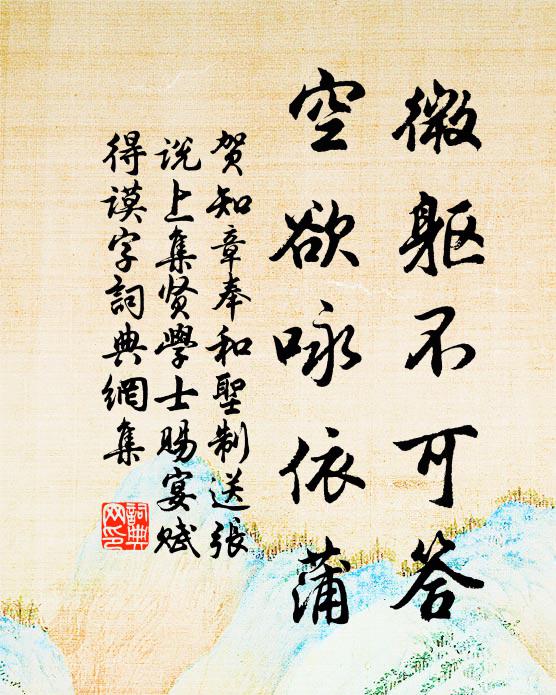 微躯不可答
空欲咏依蒲
贺知章奉和聖制送張
说上集贤學士賜宴赋
得謨字詞典網集
詞典
网印